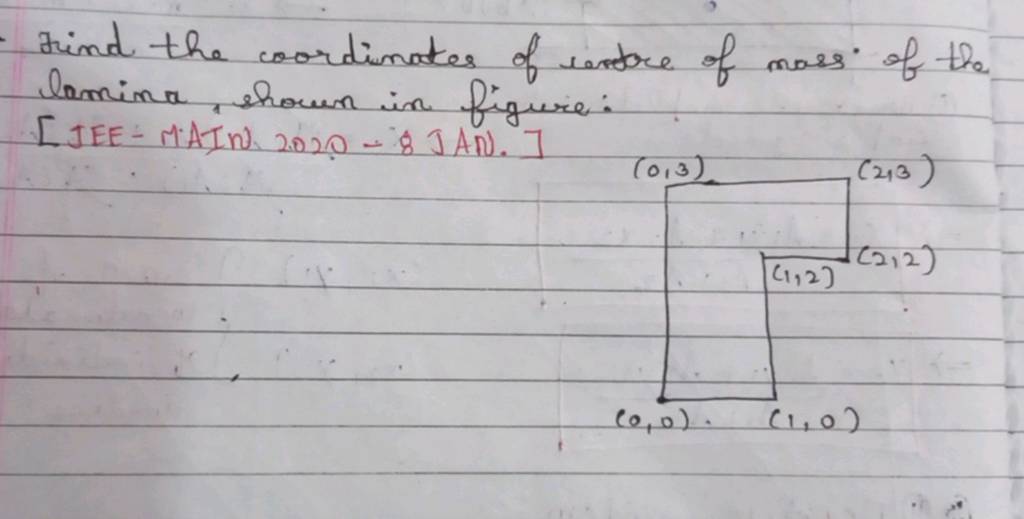 Find the coordinates of centre of mass of the
lamina, shown in figure:
[JEE-MAIN. 2020 - 8 JAN.]
(0,3)
(2,3)
(2,2)
(1,2)
(0,0).
(1,0)